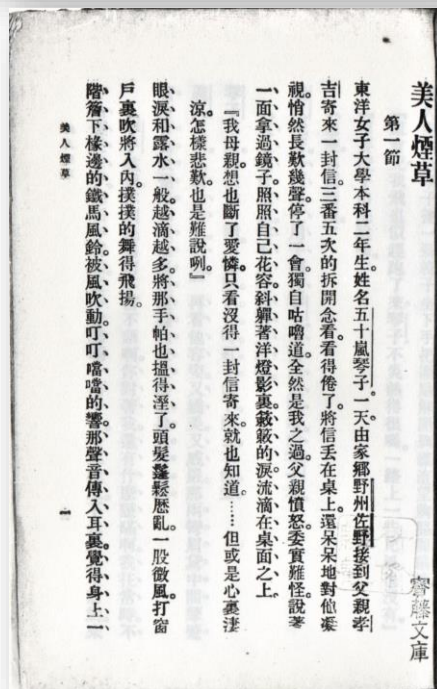 美人煙草
第一節
東洋女子大學本科二年生。姓名五十嵐琴子。一天由家鄉野州佐野接到父親孝
吉寄來一封信。三番五次的拆開念看。看得倦了。將信丟在桌上。還呆呆地對他凝
視。悄然長歎幾聲。停了一會。獨自咕嚕道。全然是我之過。父親憤怒。委實難怪。說著
一面拿過鏡子。照照自己花容。斜嚲著洋燈影裏。簌簌的淚流滴在桌面之上。
『我母親想也斷了愛憐。只看沒得一封信寄來。就也知道。……但或是心裏淒
涼。怎樣悲歎。也是難說咧。』
眼淚和露水一般。越滴越多。將那手帕也搵得溼了。頭髮鬅鬆歷亂。一股微風。打窗
戶裏吹將入內。撲撲的舞得飛揚。
階簷下椽邊的鐵馬風鈴。被風吹動。叮叮噹噹的響。那聲音傳入耳裏。覺得身上一
美人煙草
一
齋藤文庫